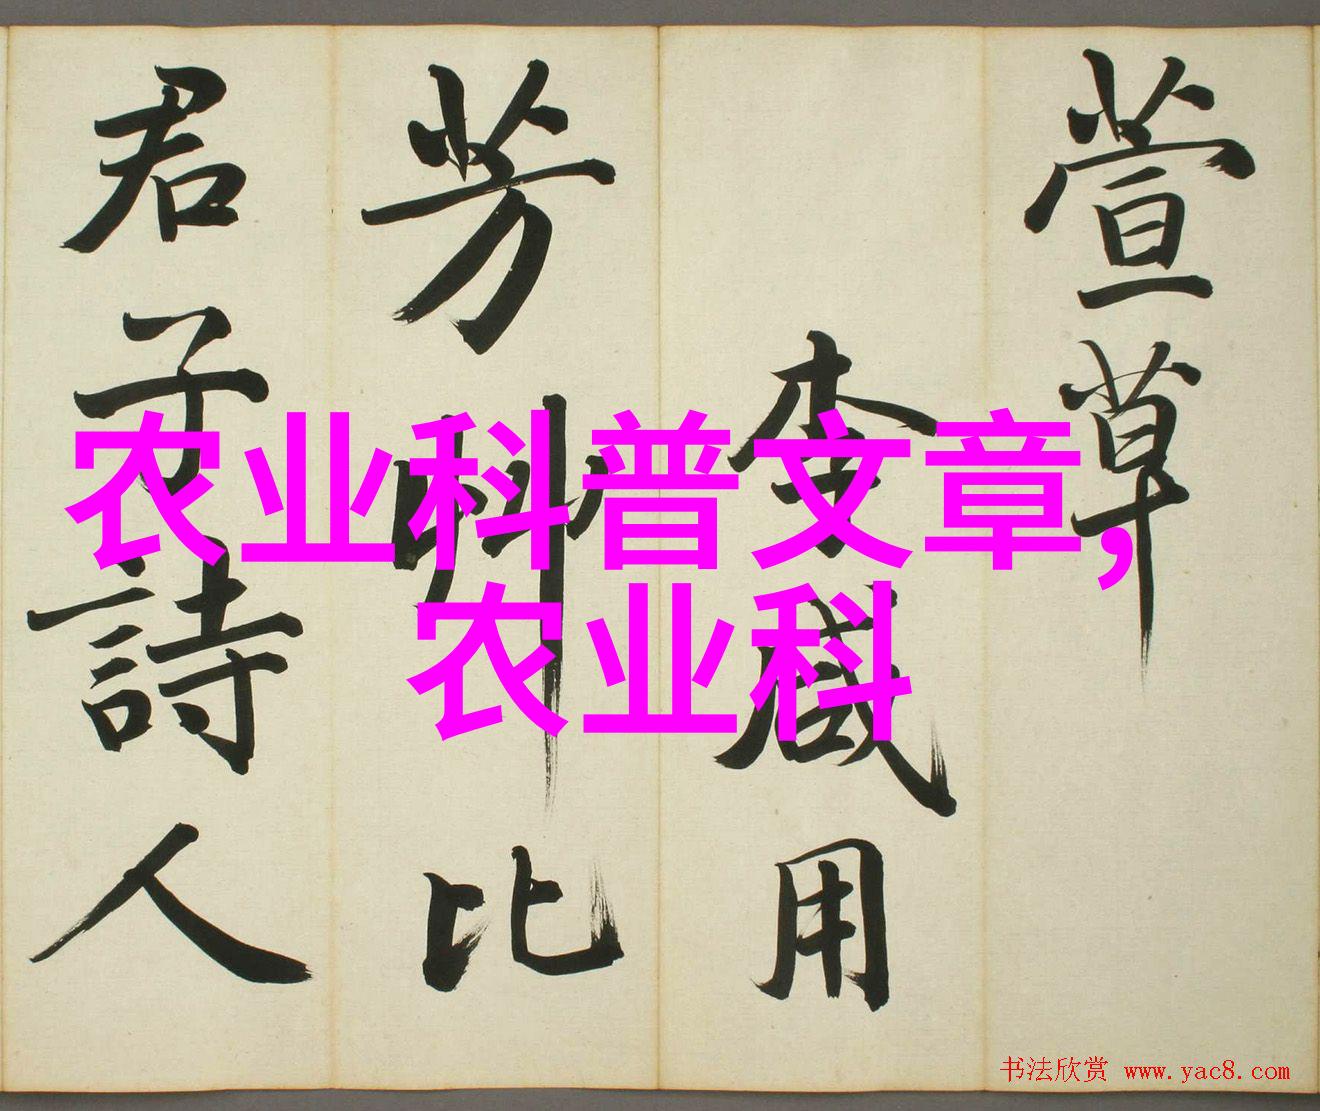 萱草
李咸用
芳草比
君子詩人
农业科普文章,
农业科
书法欣赏 www.yac8.com